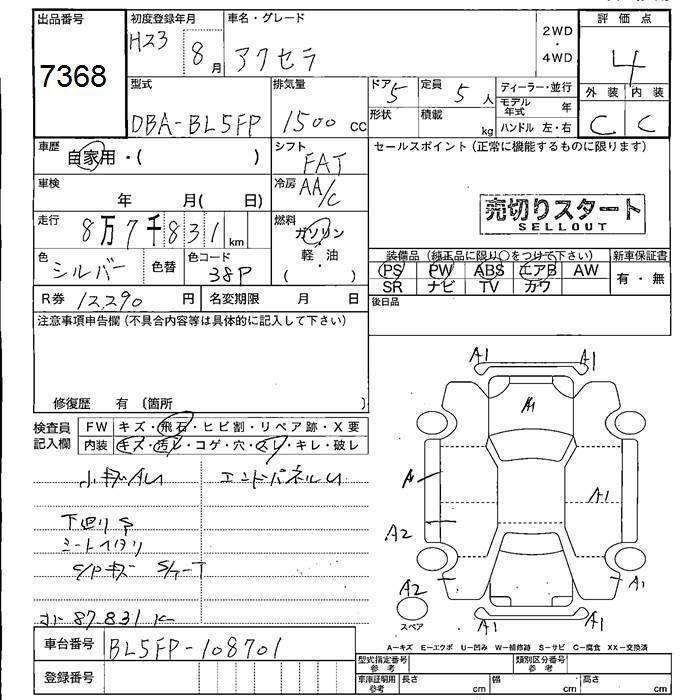 出品番号
7368
初度登録年月
H23 8月
車名・グレード
アクセラ
2WD
・
4WD
評価点
4
外装 内装
C C
型式
DBA-BL5FP
排気量
1500 cc
ドア 5
定員 5人
形状
積載 kg
ディーラー・並行
モデル年式 年
ハンドル 左・右
車歴
自家用・( )
シフト
FAT
車検
年 月( 日)
冷房
AA/C
走行
8万7千831km
燃料
ガソリン
・
軽・油
( )
色
シルバー
色替
色コード
38P
R券 12,290円
名変期限 月 日
セールスポイント (正常に機能するものに限ります)
売切りスタート
SELLOUT
装備品 (純正品に限り○をつけて下さい)
PS PW ABS エアB AW
SR ナビ TV カワ
新車保証書
有・無
後日品
注意事項申告欄 (不具合内容等は具体的に記入して下さい)
修復歴 有 〔箇所 〕
検査員記入欄
FW キズ・飛石・ヒビ割・リペア跡・X要
内装 キズ・汚レ・コゲ・穴・スレ・キレ・破レ
小キズAU
エンドパネルU
下回りS
シートヘタリ
C/Pキズ
87.831K
車台番号
BL5FP-108701
登録番号
A1 A1
A1
A
A1
A2
A2
A1
A1 A1
スペア
A-キズ E-エクボ U-凹み W-補修跡 S-サビ C-腐食 XX-交換済
型式指定番号 参考
類別区分番号 参考
車庫証明用 参考
長さ cm
幅 cm
高さ cm